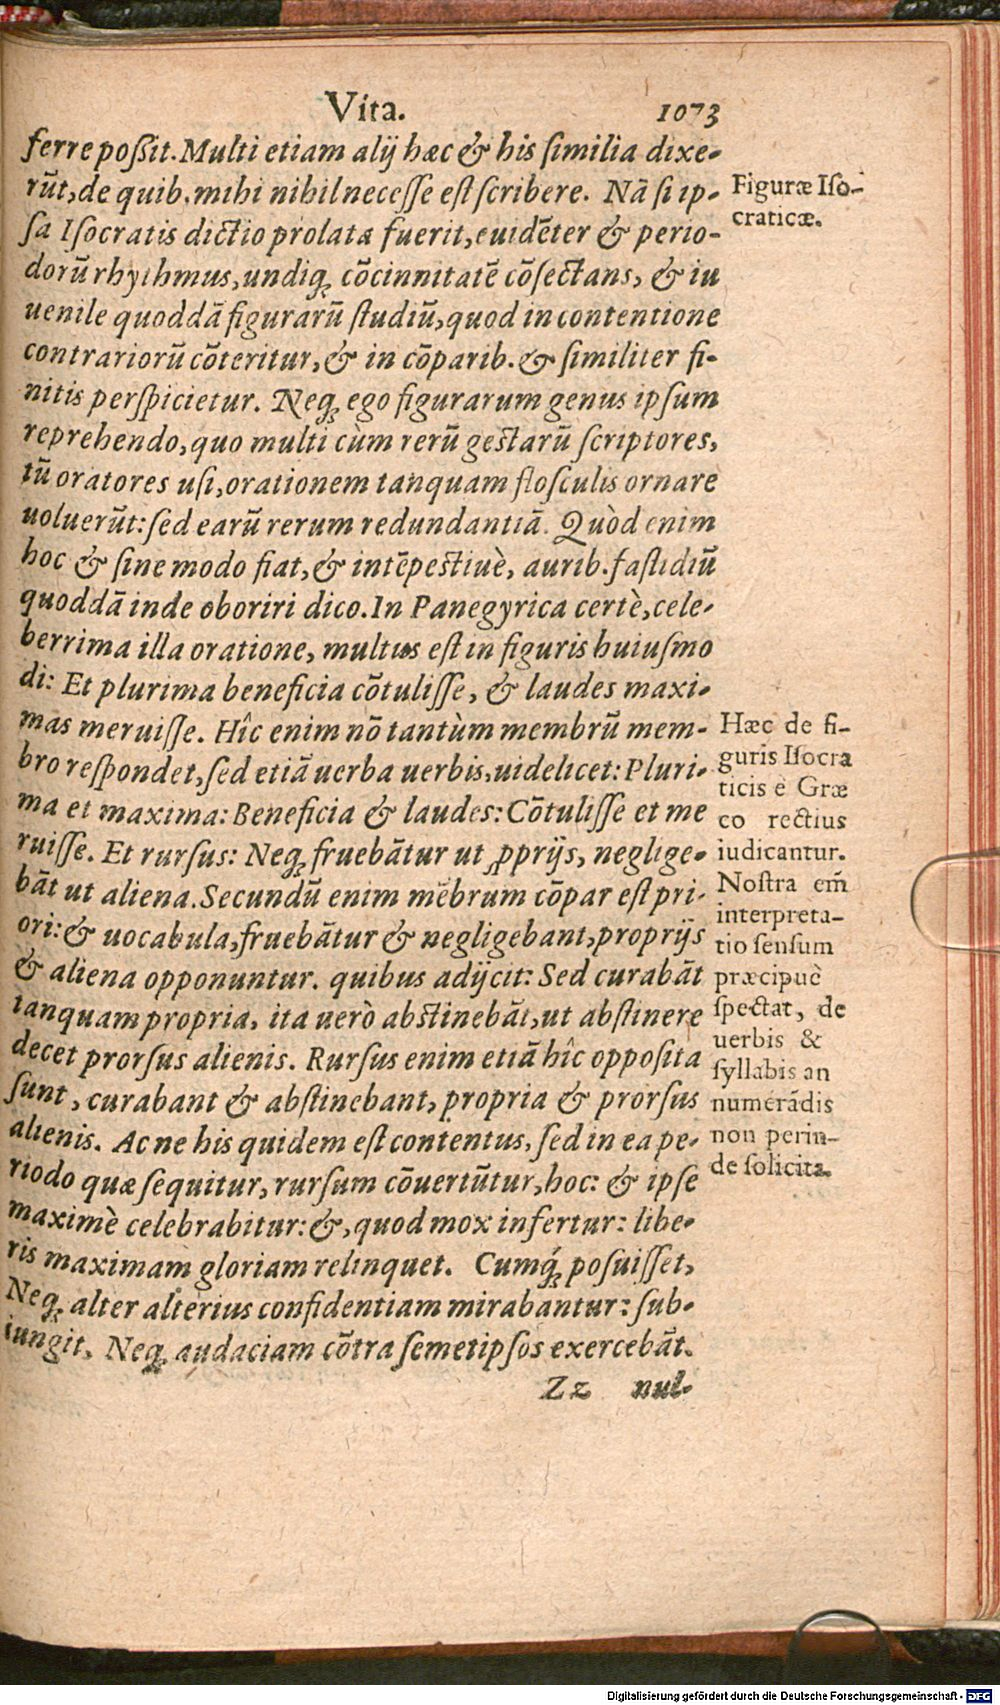 Vita. 1073
ferre poßit. Multi etiam alij hæc & his similia dixe-
rũt, de quib. mihi nihil necesse est scribere. Nã si ip-
sa Isocratis dictio prolata fuerit, euidẽter & perio-
dorũ rhythmus, undiq; cõcinnitatẽ cõsectans, & iu
uenile quoddã figurarũ studiũ, quod in contentione
contrariorũ cõteritur, & in cõparib. & similiter fi-
nitis perspicietur. Neq; ego figurarum genus ipsum
reprehendo, quo multi cùm rerũ gestarũ scriptores,
tũ oratores usi, orationem tanquam flosculis ornare
uoluerũt: sed earũ rerum redundantiã. Quòd enim
hoc & sine modo fiat, & intẽpestiuè, aurib. fastidiũ
quoddã inde oboriri dico. In Panegyrica certè, cele-
berrima illa oratione, multus est in figuris huiusmo
di: Et plurima beneficia cõtulisse, & laudes maxi-
mas meruisse. Hîc enim nõ tantùm membrũ mem-
bro respondet, sed etiã uerba uerbis, uidelicet: Pluri-
ma et maxima: Beneficia & laudes: Cõtulisse et me
ruisse. Et rursus: Neq; fruebãtur ut ꝓprijs, neglige-
bãt ut aliena. Secundũ enim mẽbrum cõpar est pri-
ori: & uocabula, fruebãtur & negligebant, proprijs
& aliena opponuntur. quibus adijcit: Sed curabãt
tanquam propria, ita uerò abstinebãt, ut abstinere
decet prorsus alienis. Rursus enim etiã hîc opposita
sunt, curabant & abstinebant, propria & prorsus
alienis. Ac ne his quidem est contentus, sed in ea pe-
riodo quæ sequitur, rursum cõuertũtur, hoc: & ipse
maximè celebrabitur: &, quod mox infertur: libe-
ris maximam gloriam relinquet. Cumq́; posuisset,
Neq; alter alterius confidentiam mirabantur: sub-
iungit, Neq; audaciam cõtra semetipsos exercebãt.
Zz nul-
Figuræ Iso-
craticæ.
Hæc de fi-
guris Isocra
ticis è Græ
co rectius
iudicantur.
Nostra em̃
interpreta-
tio sensum
præcipuè
spectat, de
uerbis &
syllabis an
numerãdis
non perin-
de solicita.
Digitalisierung gefördert durch die Deutsche Forschungsgemeinschaft - DFG